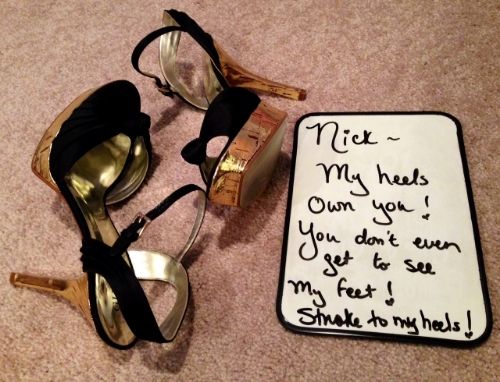 Nick ~
My heels
Own you!
You don't even
get to see
my feet!
Stroke to my heels!